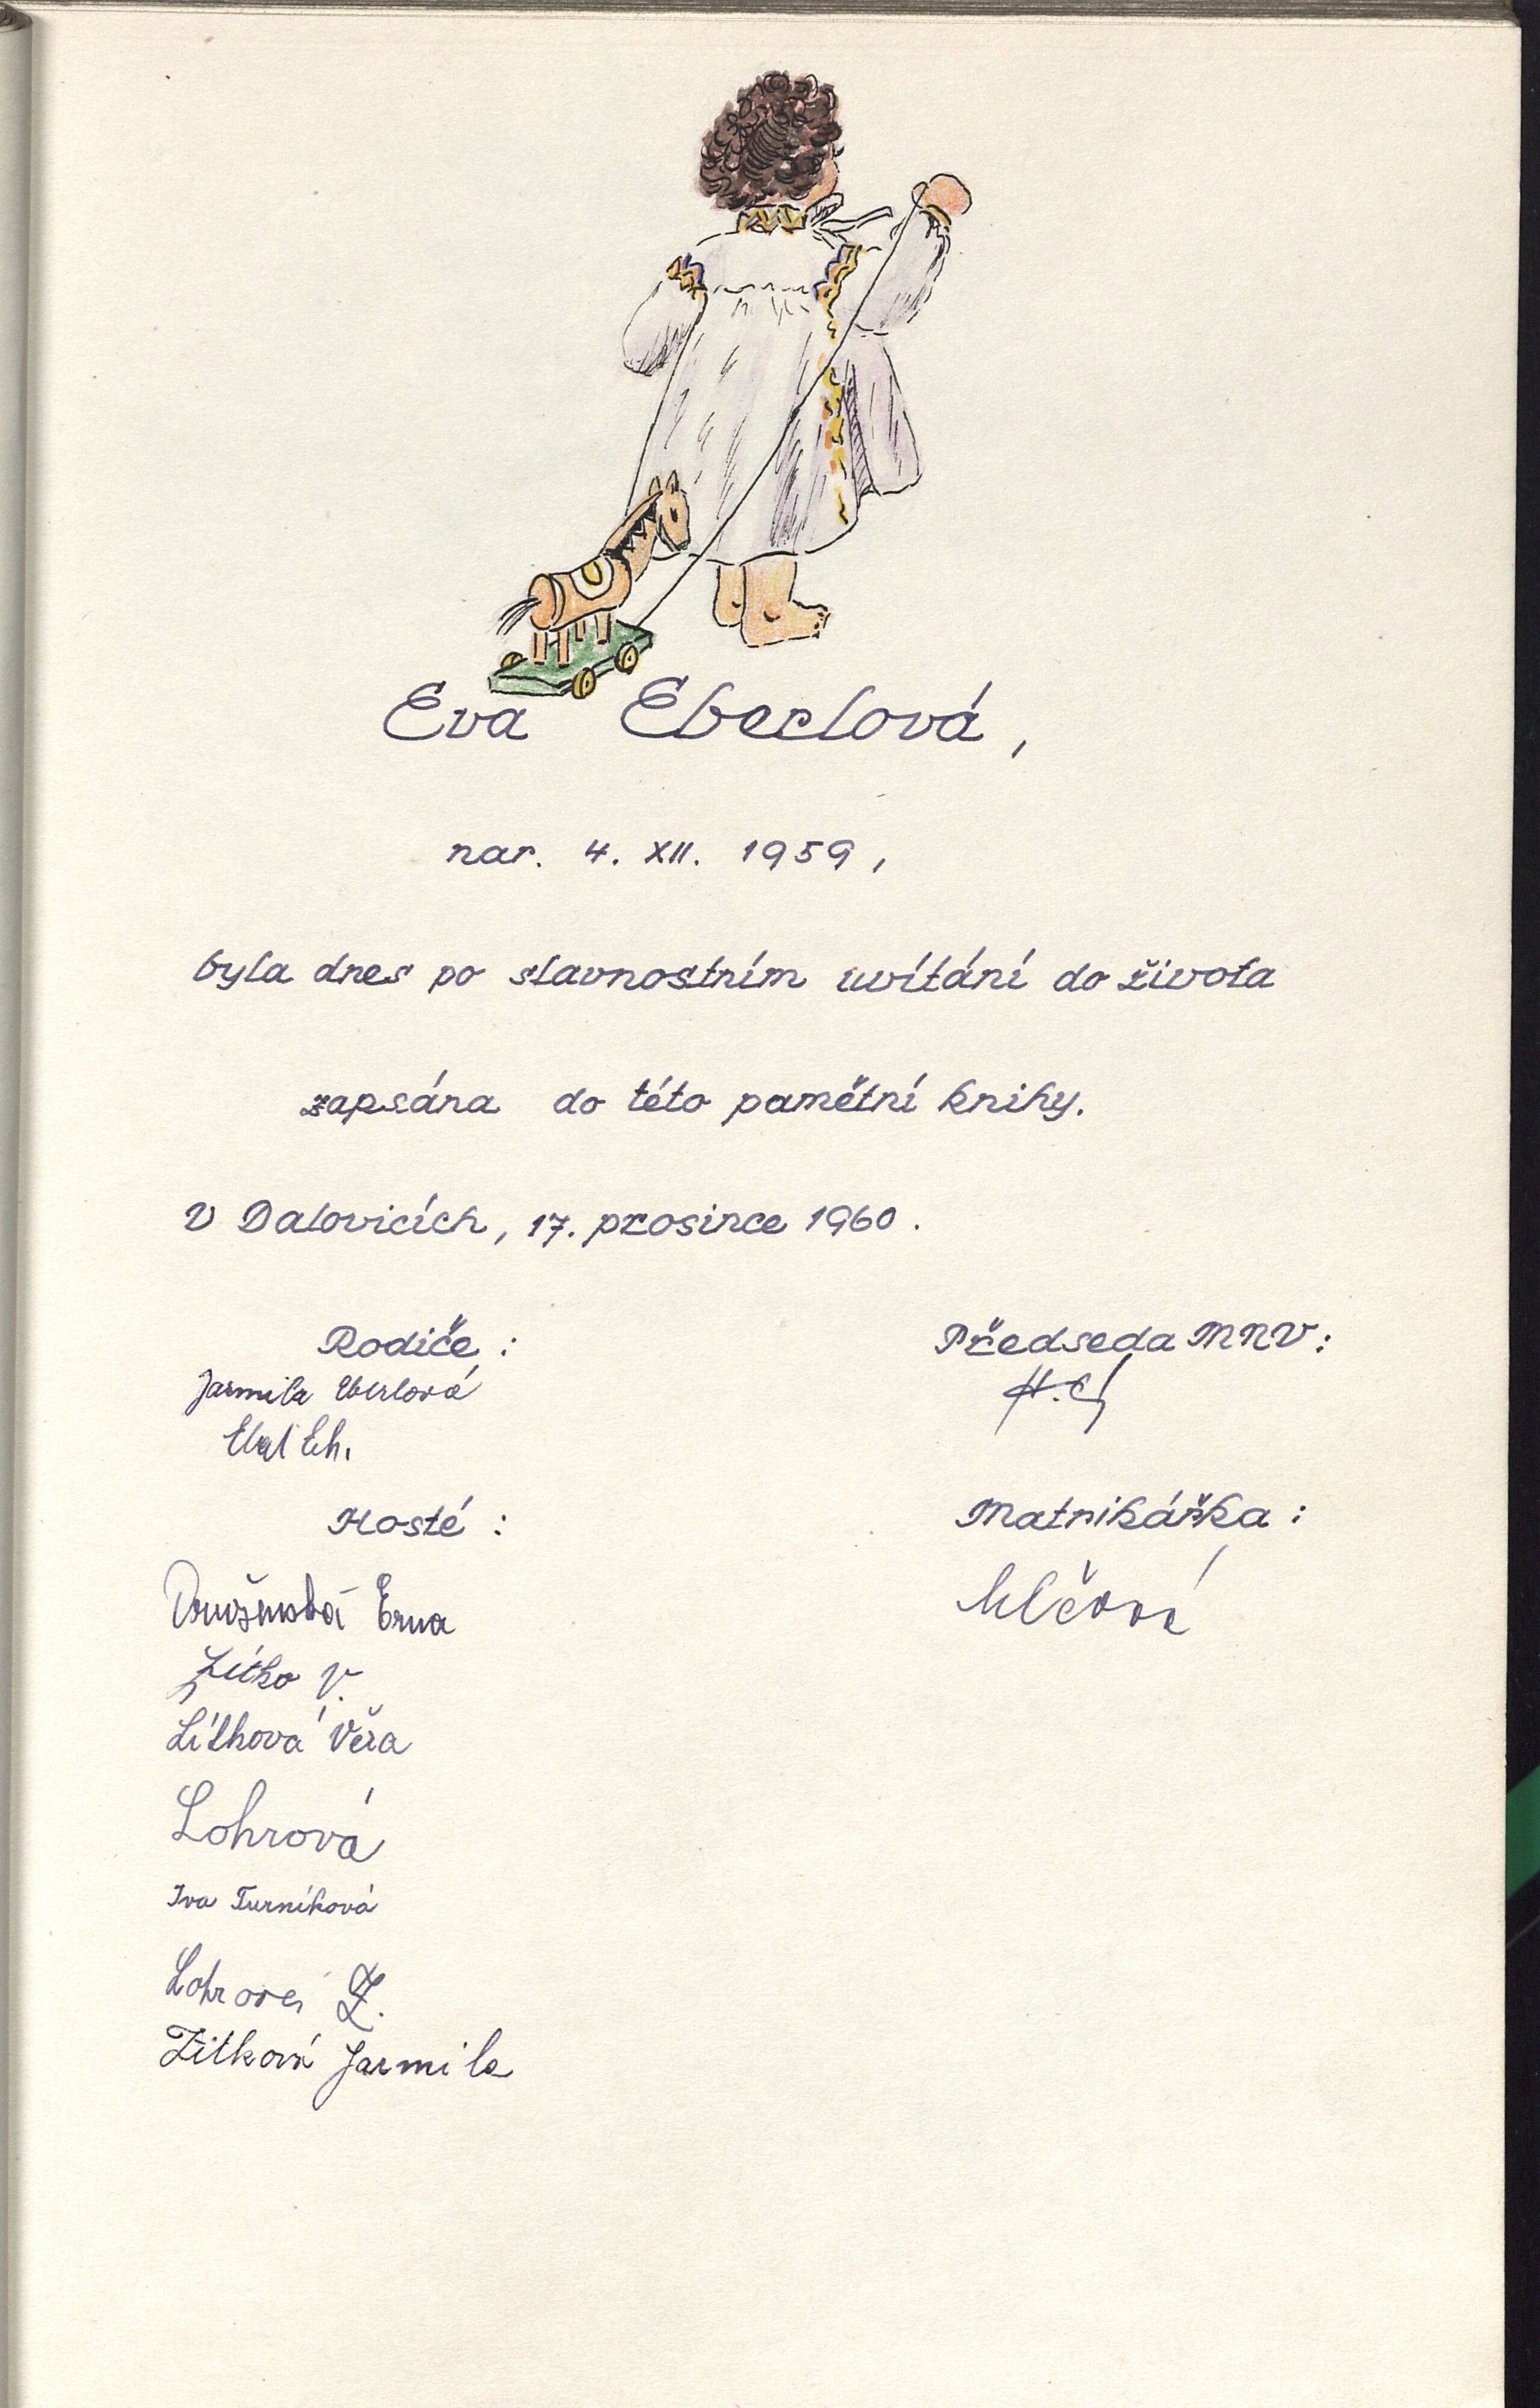 Eva Eberlová,
nar. 4. XII. 1959,
byla dnes po slavnostním uvítání do života
zapsána do této pamětní knihy.
V Dalovicích, 17. prosince 1960.
Rodiče:
Jarmila Eberlová
Předseda MNV:
Hosté:
Matrikářka:
Erna
Mlčová
Žitko V.
Věra
Lohrová
Iva Turníková
Lohrová Z.
Žitková Jarmila